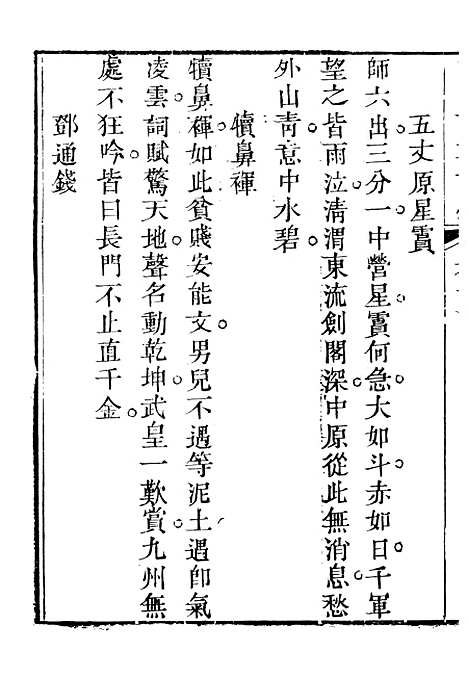 五丈原星霣
師六出三分一中營星霣何急大如斗赤如日千軍
望之皆雨泣清渭東流劍閣深中原從此無消息愁
外山靑意中水碧
犢鼻褌
犢鼻褌如此貧賤安能文男兒不遇等泥土遇卽氣
凌雲詞賦驚天地聲名動乾坤武皇一歎賞九州無
處不狂吟皆曰長門不止直千金
鄧通錢